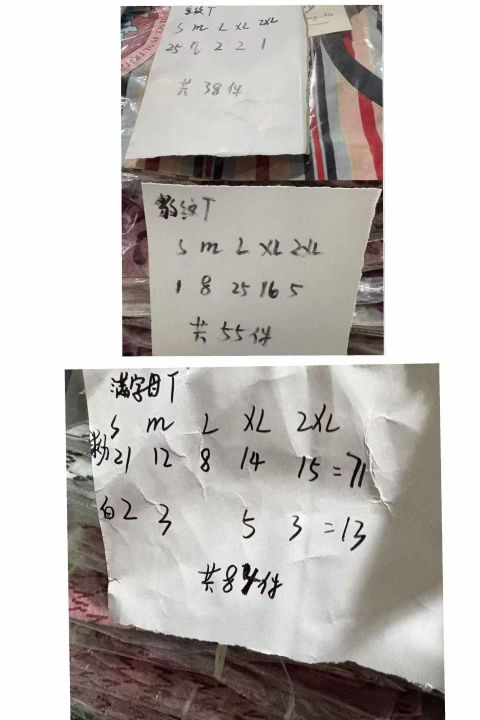 纹T
S m L XL 2XL
25 8 2 2 1
共 38 件
豹纹T
S m L XL 2XL
1 8 25 16 5
共 55 件
满字母T
S m L XL 2XL
粉 21 12 8 14 15 =71
白 2 3 5 3 =13
共 84 件